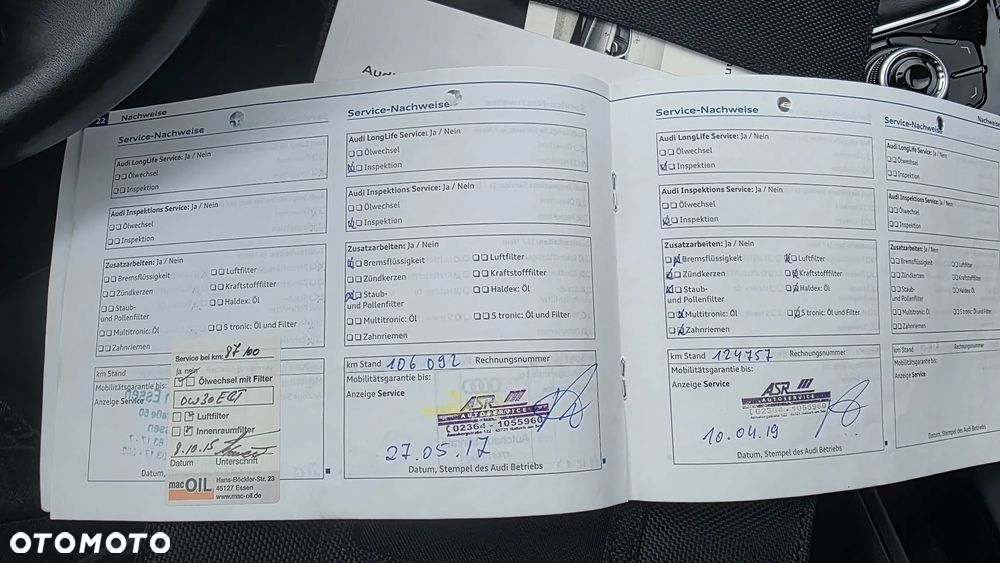 Audi
22 Nachweise
Service-Nachweise
Audi LongLife Service: Ja / Nein
Ölwechsel
Inspektion
Audi Inspektions Service: Ja / Nein
Ölwechsel
Inspektion
Zusatzarbeiten: Ja / Nein
Bremsflüssigkeit
Luftfilter
Zündkerzen
Kraftstofffilter
Staub-
und Pollenfilter
Haldex: Öl
Multitronic: Öl
S tronic: Öl und Filter
Zahnriemen
km Stand
Mobilitätsgarantie bis:
Anzeige Service
Datum,
Service bei km: 87100
ja nein
Ölwechsel mit Filter
0W30
Luftfilter
Innenraumfilter
8.10.15
Datum Unterschrift
mac OIL
Hans-Böckler-Str. 23
45127 Essen
www.mac-oil.de
Service-Nachweise
Audi LongLife Service: Ja / Nein
Ölwechsel
Inspektion
Audi Inspektions Service: Ja / Nein
Ölwechsel
Inspektion
Zusatzarbeiten: Ja / Nein
Bremsflüssigkeit
Luftfilter
Zündkerzen
Kraftstofffilter
Staub-
und Pollenfilter
Haldex: Öl
Multitronic: Öl
S tronic: Öl und Filter
Zahnriemen
km Stand 106 092 Rechnungsnummer
Mobilitätsgarantie bis:
Anzeige Service
ASR
AUTOSERVICE
02364 - 1055960
27.05.17
Datum, Stempel des Audi Betriebs
Service-Nachweise
Audi LongLife Service: Ja / Nein
Ölwechsel
Inspektion
Audi Inspektions Service: Ja / Nein
Ölwechsel
Inspektion
Zusatzarbeiten: Ja / Nein
Bremsflüssigkeit
Luftfilter
Zündkerzen
Kraftstofffilter
Staub-
und Pollenfilter
Haldex: Öl
Multitronic: Öl
S tronic: Öl und Filter
Zahnriemen
km Stand 124757 Rechnungsnummer
Mobilitätsgarantie bis:
Anzeige Service
ASR
AUTOSERVICE
02364 - 1055960
10.04.19
Datum, Stempel des Audi Betriebs
Nachweise
Service-Nachweise
Audi LongLife Service: Ja / Nein
Ölwechsel
Inspektion
Audi Inspektions Service: Ja / Nein
Ölwechsel
Inspektion
Zusatzarbeiten: Ja / Nein
Bremsflüssigkeit
Luftfilter
Zündkerzen
Kraftstofffilter
Staub-
und Pollenfilter
Haldex: Öl
Multitronic: Öl
S tronic: Öl und Filter
Zahnriemen
km Stand Rechnungsnummer
Mobilitätsgarantie bis:
Anzeige Service
Datum, Stempel des Audi Betriebs
OTOMOTO